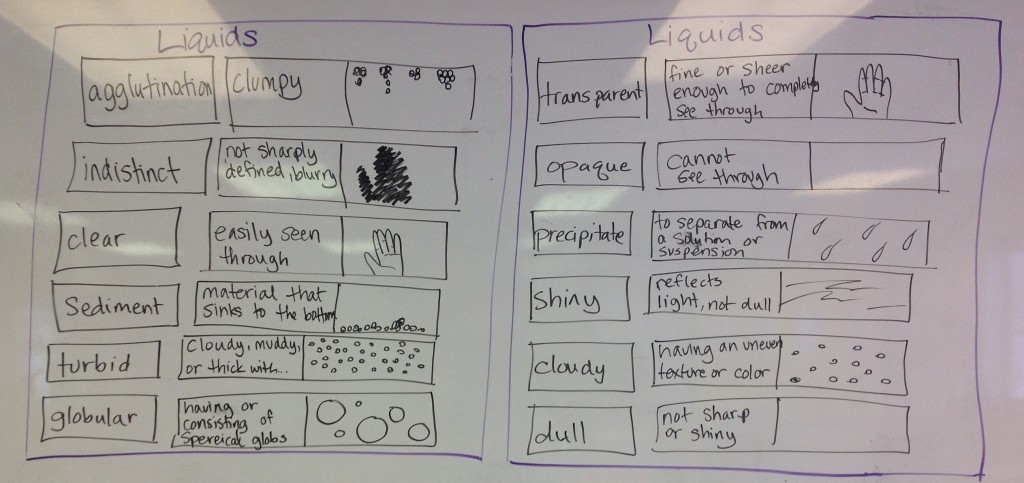 Liquids
agglutination
Clumpy
indistinct
not sharply
defined, blurry
clear
easily seen
through
Sediment
material that
sinks to the bottom
turbid
cloudy, muddy,
or thick with...
globular
having or
consisting of
Spereical globs
Liquids
transparent
fine or sheer
enough to completely
see through
opaque
cannot
see through
precipitate
to separate from
a solution or
suspension
shiny
reflects
light, not dull
cloudy
having an uneven
texture or color
dull
not sharp
or shiny